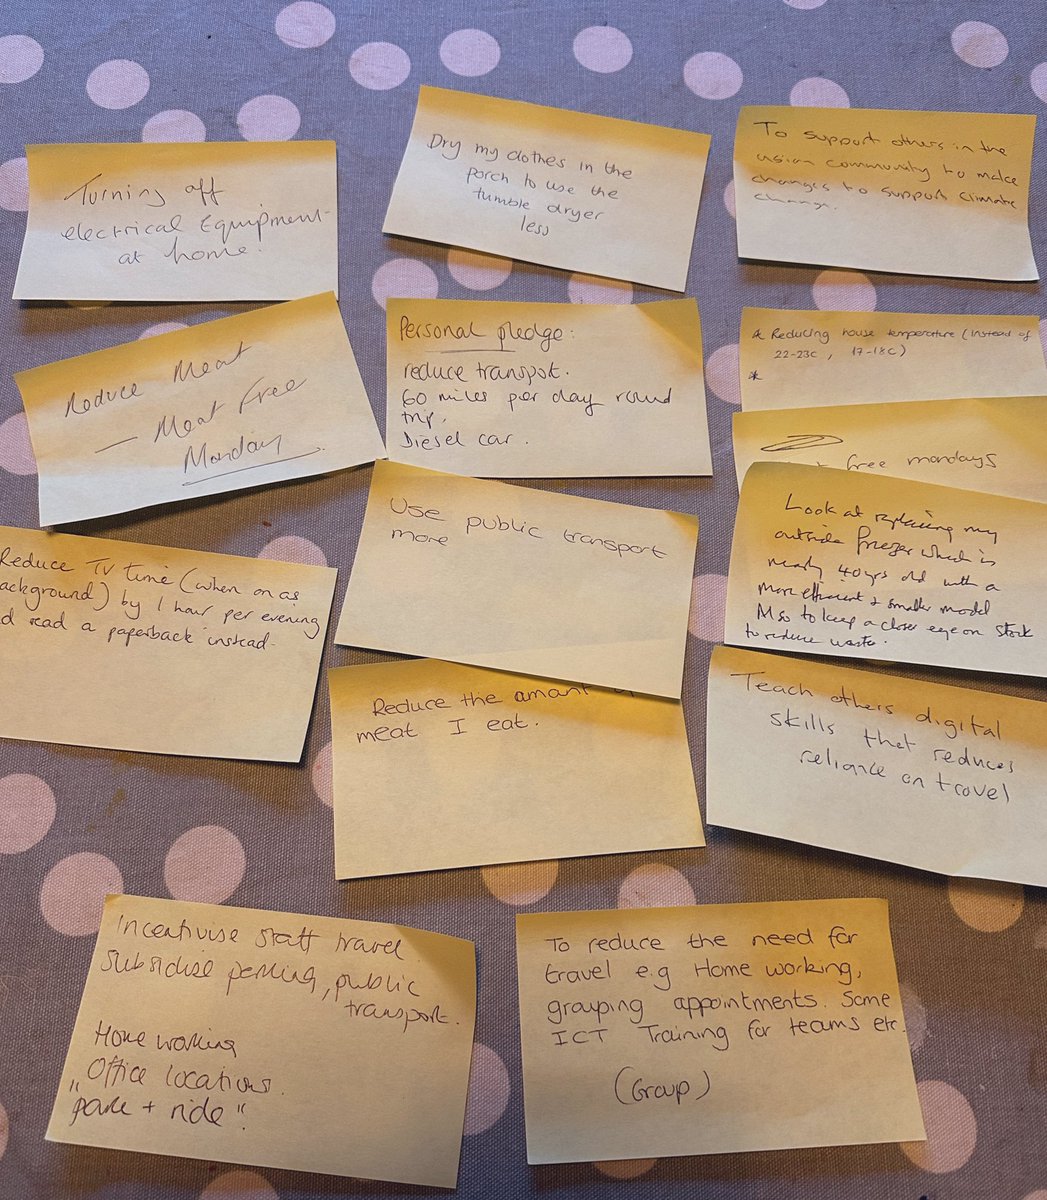 Turning off
electrical Equipment
at home.
Dry my clothes in the
porch to use the
tumble dryer
less
To support others in the
asian community to make
changes to support climate
change.
Reduce Meat
— Meat Free
Monday
Personal pledge:
reduce transpot.
60 miles per day round
trip.
Diesel car.
* Reducing house temperature (instead of
22-23c, 17-18c)
*
free mondays
Use public transport
more
Look at replacing my
outside freezer which is
nearly 40yrs old with a
more efficient & smaller model
Also to keep a closer eye on stock
to reduce waste.
Reduce TV time (when on as
ackground) by 1 hour per evening
d read a paperback instead-
Reduce the amant
meat I eat.
Teach others digital
skills that reduces
reliance on travel
Incentivise staff travel
subsidise parking, public
transport.
Home working
"Office locations.
park + ride".
To reduce the need for
travel e.g Home working,
grouping appointments. Some
ICT Training for teams etc.
(Group)